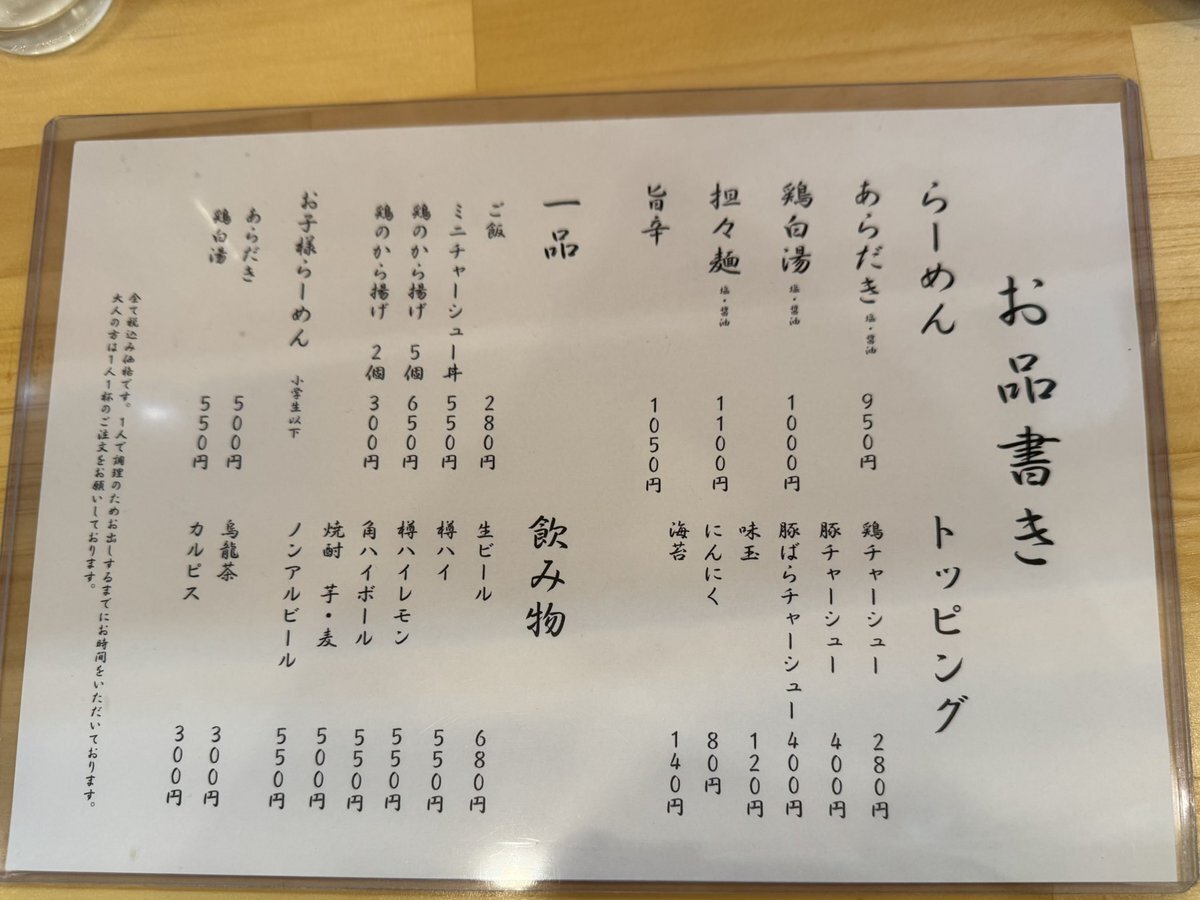 お品書き
らーめん
あらだき 塩・醤油 950円
鶏白湯 塩・醤油 1000円
担々麺 塩・醤油 1100円
旨辛 1050円
トッピング
鶏チャーシュー 280円
豚チャーシュー 400円
豚ばらチャーシュー 400円
味玉 120円
にんにく 80円
海苔 140円
一品
ご飯 280円
ミニチャーシュー丼 550円
鶏のから揚げ 5個 650円
鶏のから揚げ 2個 300円
お子様らーめん 小学生以下
あらだき 500円
鶏白湯 550円
飲み物
生ビール 680円
樽ハイ 550円
樽ハイレモン 550円
角ハイボール 550円
焼酎 芋・麦 500円
ノンアルビール 550円
烏龍茶 300円
カルピス 300円
全て税込み価格です。1人で調理のためお出しするまでにお時間をいただいております。
大人の方は1人1杯のご注文をお願いしております。